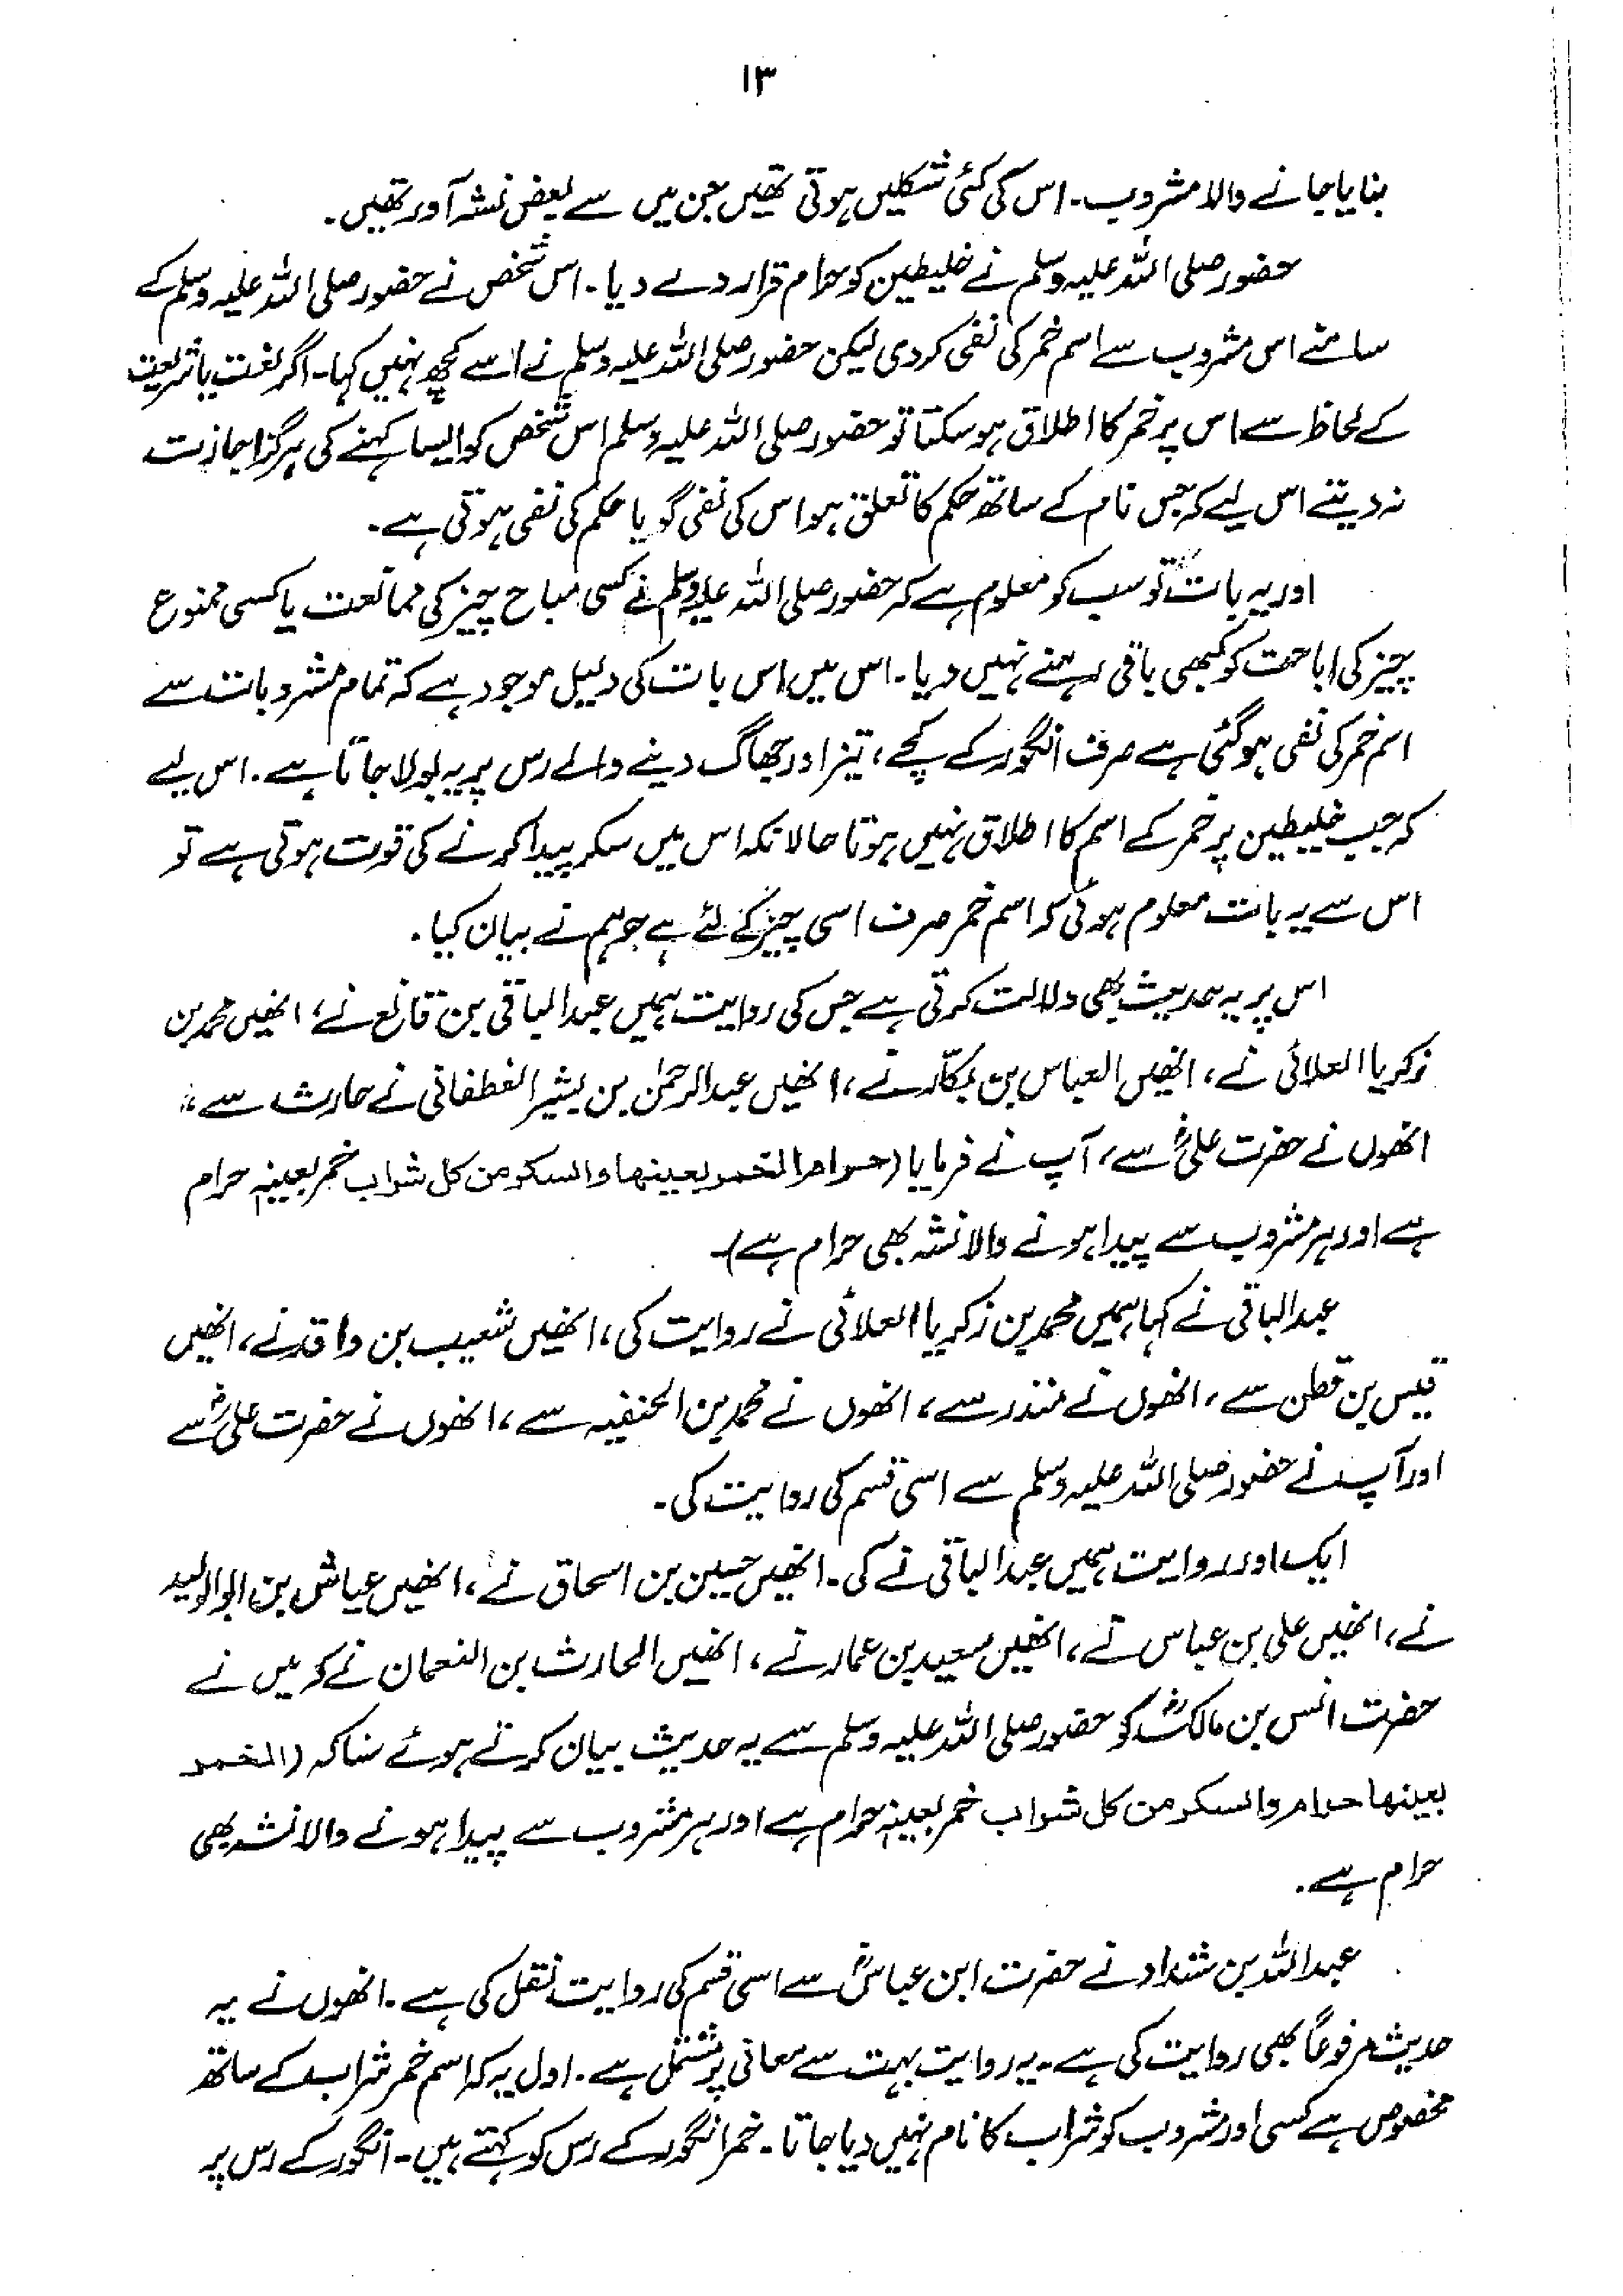 ۱۳
بنایا جانے والا مشروب۔ اس کی کئی شکلیں ہوتی تھیں جن میں سے بعض نشہ آور تھیں۔
حضور صلی اللہ علیہ وسلم نے خلیطین کو حرام قرار دے دیا۔ اس شخص نے حضور صلی اللہ علیہ وسلم کے
سامنے اس مشروب سے اسم خمر کی نفی کردی لیکن حضور صلی اللہ علیہ وسلم نے اسے کچھ نہیں کہا۔ اگر لغت یا شریعت
کے لحاظ سے اس پر خمر کا اطلاق ہوسکتا تو حضور صلی اللہ علیہ وسلم اس شخص کو ایسا کہنے کی ہرگز اجازت
نہ دیتے اس لیے کہ جس نام کے ساتھ حکم کا تعلق ہو اس کی نفی گویا حکم کی نفی ہوتی ہے۔
اور یہ بات تو سب کو معلوم ہے کہ حضور صلی اللہ علیہ وسلم نے کسی مباح چیز کی ممانعت یا کسی ممنوع
چیز کی اباحت کو کبھی باقی رہنے نہیں دیا۔ اس میں اس بات کی دلیل موجود ہے کہ تمام مشروبات سے
اسم خمر کی نفی ہوگئی ہے صرف انگور کے کچے، تیز اور جھاگ دینے والے رس پر یہ بولا جاتا ہے۔ اس لیے
کہ جب خلیطین پر خمر کے اسم کا اطلاق نہیں ہوتا حالانکہ اس میں سکر پیدا کرنے کی قوت ہوتی ہے تو
اس سے یہ بات معلوم ہوئی کہ اسم خمر صرف اسی چیز کے لئے ہے جو ہم نے بیان کیا۔
اس پر یہ حدیث بھی دلالت کرتی ہے جس کی روایت ہمیں عبدالباقی بن قانع نے، انھیں محمد بن
زکریا العلائی نے، انھیں العباس بن بکّار نے، انھیں عبدالرحمٰن بن بشیر الغطفانی نے حارث سے،
انھوں نے حضرت علیؓ سے، آپ نے فرمایا (حرام الخمر بعینها والسکر من کل شراب خمر بعینہٖ حرام
ہے اور ہر مشروب سے پیدا ہونے والا نشہ بھی حرام ہے)۔
عبدالباقی نے کہا ہمیں محمد بن زکریا العلائی نے روایت کی، انھیں شعیب بن واقد نے، انھیں
قیس بن قطن سے، انھوں نے منذر سے، انھوں نے محمد بن الحنفیہ سے، انھوں نے حضرت علیؓ سے
اور آپ نے حضور صلی اللہ علیہ وسلم سے اسی قسم کی روایت کی۔
ایک اور روایت ہمیں عبدالباقی نے کی۔ انھیں حسین بن اسحاق نے، انھیں عیاش بن ابوالولید
نے، انھیں علی بن عباس نے، انھیں سعید بن عمار نے، انھیں الحارث بن النعمان نے کہ میں نے
حضرت انس بن مالکؓ کو حضور صلی اللہ علیہ وسلم سے یہ حدیث بیان کرتے ہوئے سنا کہ (الخمر
بعینها حرام والسکر من کل شراب خمر بعینہٖ حرام ہے اور ہر مشروب سے پیدا ہونے والا نشہ بھی
حرام ہے۔
عبداللہ بن شداد نے حضرت ابن عباسؓ سے اسی قسم کی روایت نقل کی ہے۔ انھوں نے یہ
حدیث مرفوعاً بھی روایت کی ہے۔ یہ روایت بہت سے معانی پر مشتمل ہے۔ اول یہ کہ اسم خمر شراب کے ساتھ
مخصوص ہے کسی اور مشروب کو شراب کا نام نہیں دیا جاتا۔ خمر انگور کے رس کو کہتے ہیں۔ انگور کے رس پر